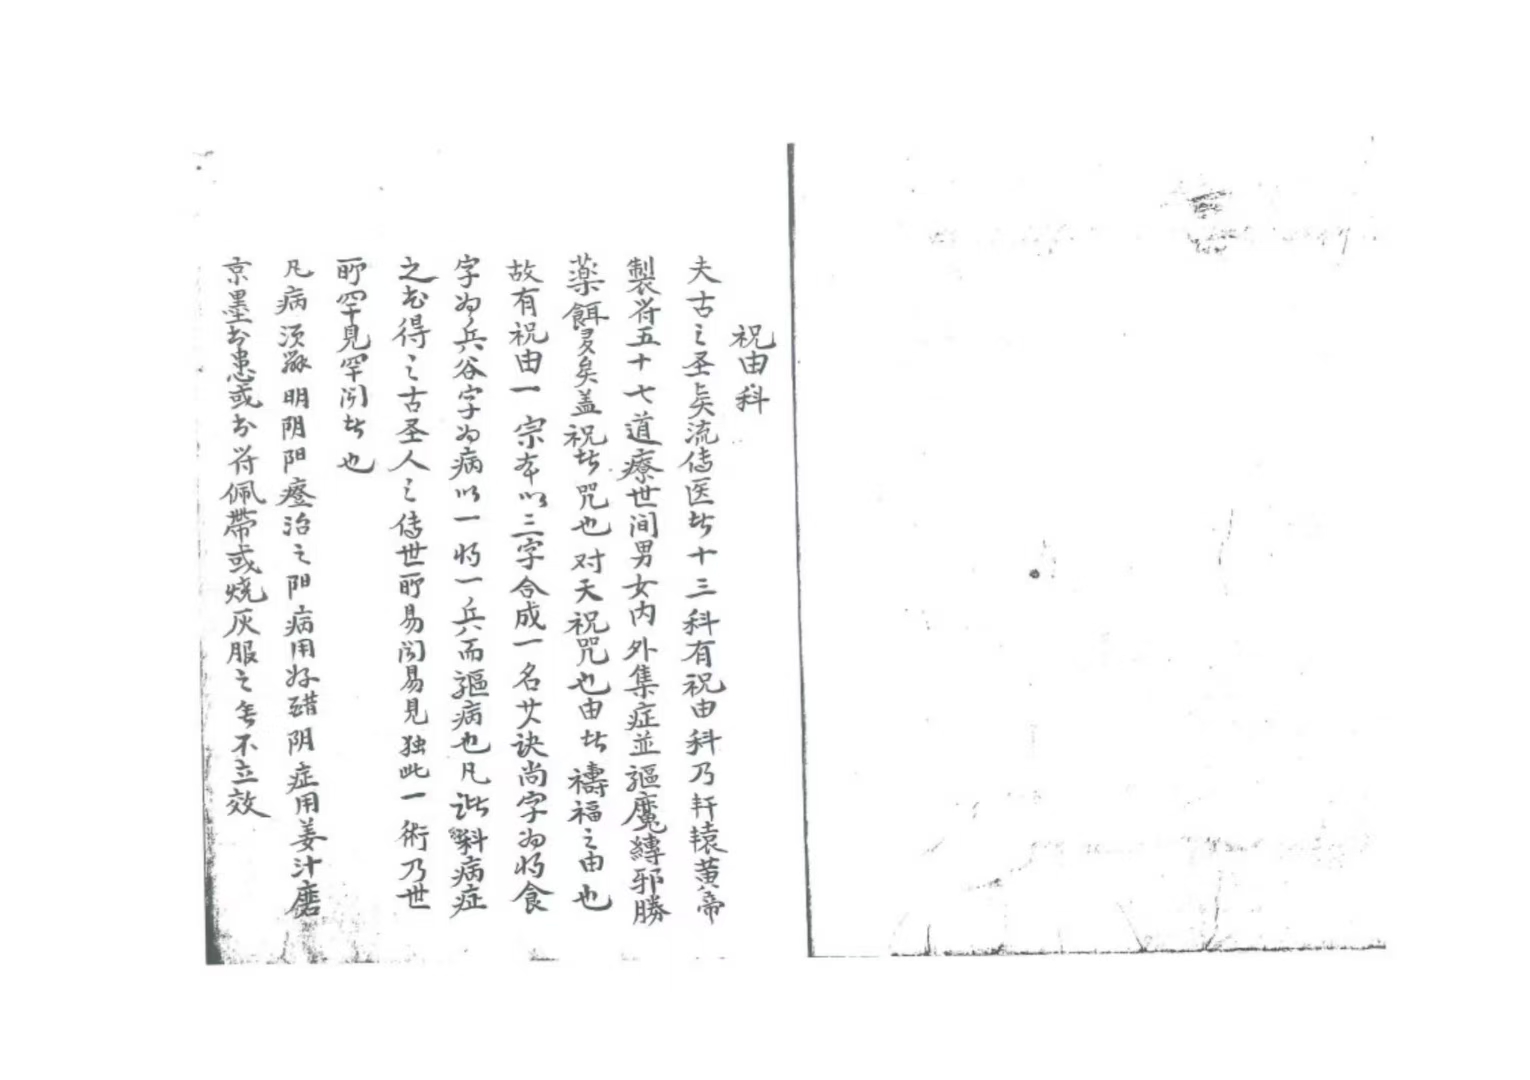 祝由科
夫古之圣矣流传医者十三科有祝由科乃轩辕黄帝
製符五十七道療世间男女内外集症並驅魔縛邪勝
藥餌多矣盖祝者咒也对天祝咒也由者禱福之由也
故有祝由一宗本以三字合成一名其诀尚字为将食
字为兵谷字为病以一将一兵而驅病也凡諸科病症
之书得之古圣人之传世所易闻易見独此一術乃世
所罕見罕闻者也
凡病须辨明阴阳癥治之阳病用好醋阴症用姜汁磨
京墨书患或书符佩帶或烧灰服之無不立效